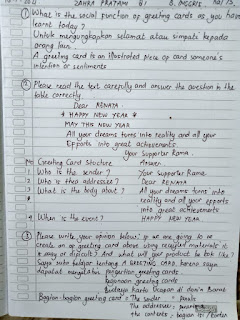 ZAHRA PRATAMI 8I B. INGGRIS
① What is the social function of greeting cards as you have
learnt today?
Untuk mengungkapkan selamat atau simpati kepada
orang lain.
A greeting card is an illustrated piece of card someone's
intention or sentiments
② Please read the text carefully and answer the question in the
table correctly.
Dear RENATA.
HAPPY NEW YEAR
MAY THIS NEW YEAR
All your dreams turns into reality and all your
Efforts into great achievements.
Your Supporter Rama.
No Greeting Card Stucture Answer.
1 Who is the sender? Your Supporter Rama
2 Who is the addressee? Dear RENATA
3 What is the body about? All your dreams turns into
reality and all of your efforts
into great achievements
4 When is the event? HAPPY NEW YEAR
③ Please write your opinion below: If we are going to be
create an greeting card above using recycled materials is
it easy or difficult? And what will your product be look like?
Saya suka belajar tentang A GREETING CARD karena saya
dapat mengetahui pengertian greeting cards
kegunaan greeting cards
Bagian-bagian greeting card = The sender = penulis
The addressee:
the contents = bagian isi/konten